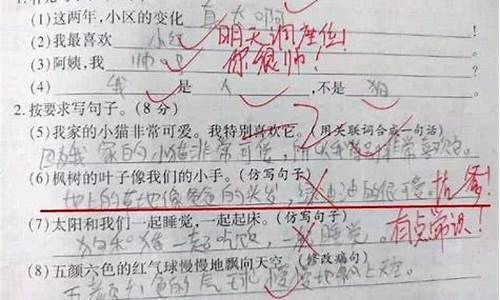 (1)这两年,小区的变化 真大啊
(2)我最喜欢 小红 明天调座位!
(3)阿姨,我 帅吧 你很帅!
(4) 我 是 人 ,不是 狗
2.按要求写句子。(8分)
(5)我家的小猫非常可爱。我特别喜欢它。(用关联词合成一句话)
因为我家的小猫非常可爱,所以我 非常喜欢它。
(6)枫树的叶子像我们的小手。(仿写句子)
地上的草地像爸爸的头发,绿油油的很可爱。抗争!
(7)太阳和我们一起睡觉,一起起床。(仿写句子)
狗和猪一起吃饭,一起睡觉。有点常识!
(8)五颜六色的红气球慢慢地飘向天空。(修改病句)
五颜六色的气球慢慢地飘上天空。